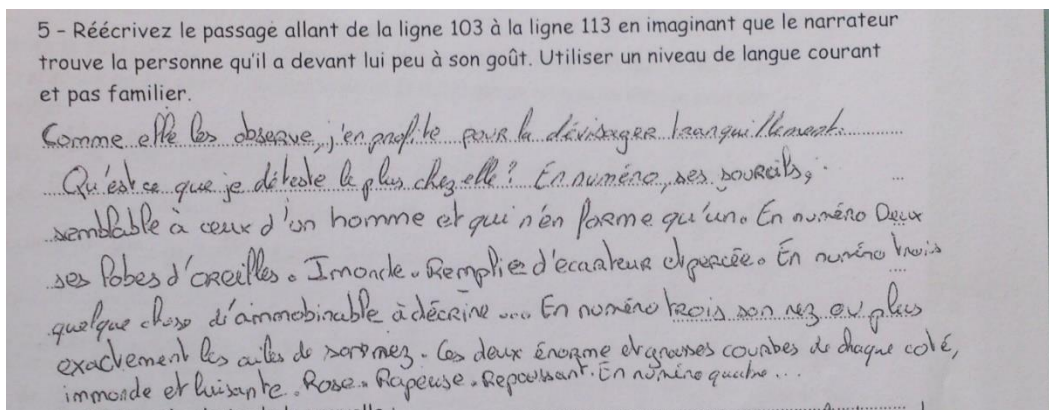 5 - Réécrivez le passage allant de la ligne 103 à la ligne 113 en imaginant que le narrateur
trouve la personne qu'il a devant lui peu à son goût. Utiliser un niveau de langue courant
et pas familier.
Comme elle les observe, j'en profite pour la dévisager tranquillement.
Qu'est ce que je déteste le plus chez elle? En numéro, ses sourcils,
semblable à ceux d'un homme et qui n'en forme qu'un. En numéro Deux
ses lobes d'oreilles. Imonde. Remplie d'ecarteur et percée. En numéro trois
quelque chose d'ammobinable à décrire ... En numéro trois son nez ou plus
exactement les ailes de son nez. Ces deux énorme et grosses courbes de chaque coté,
immonde et luisante. Rose. Rapeuse. Repoussant. En numéro quatre ...